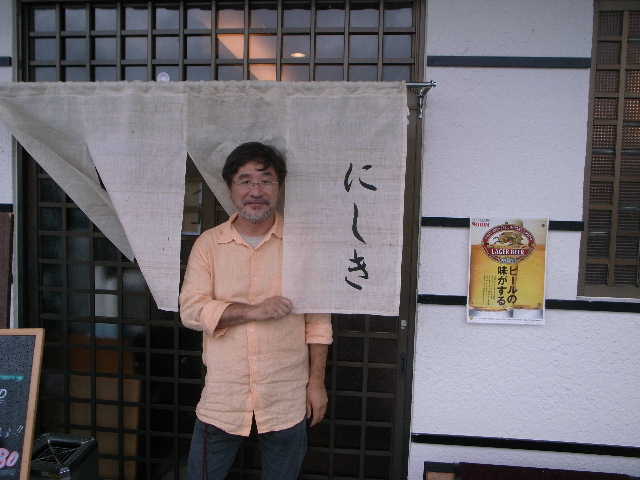 にしき
KIRIN
LAGER BEER
ビールの
味がする
80